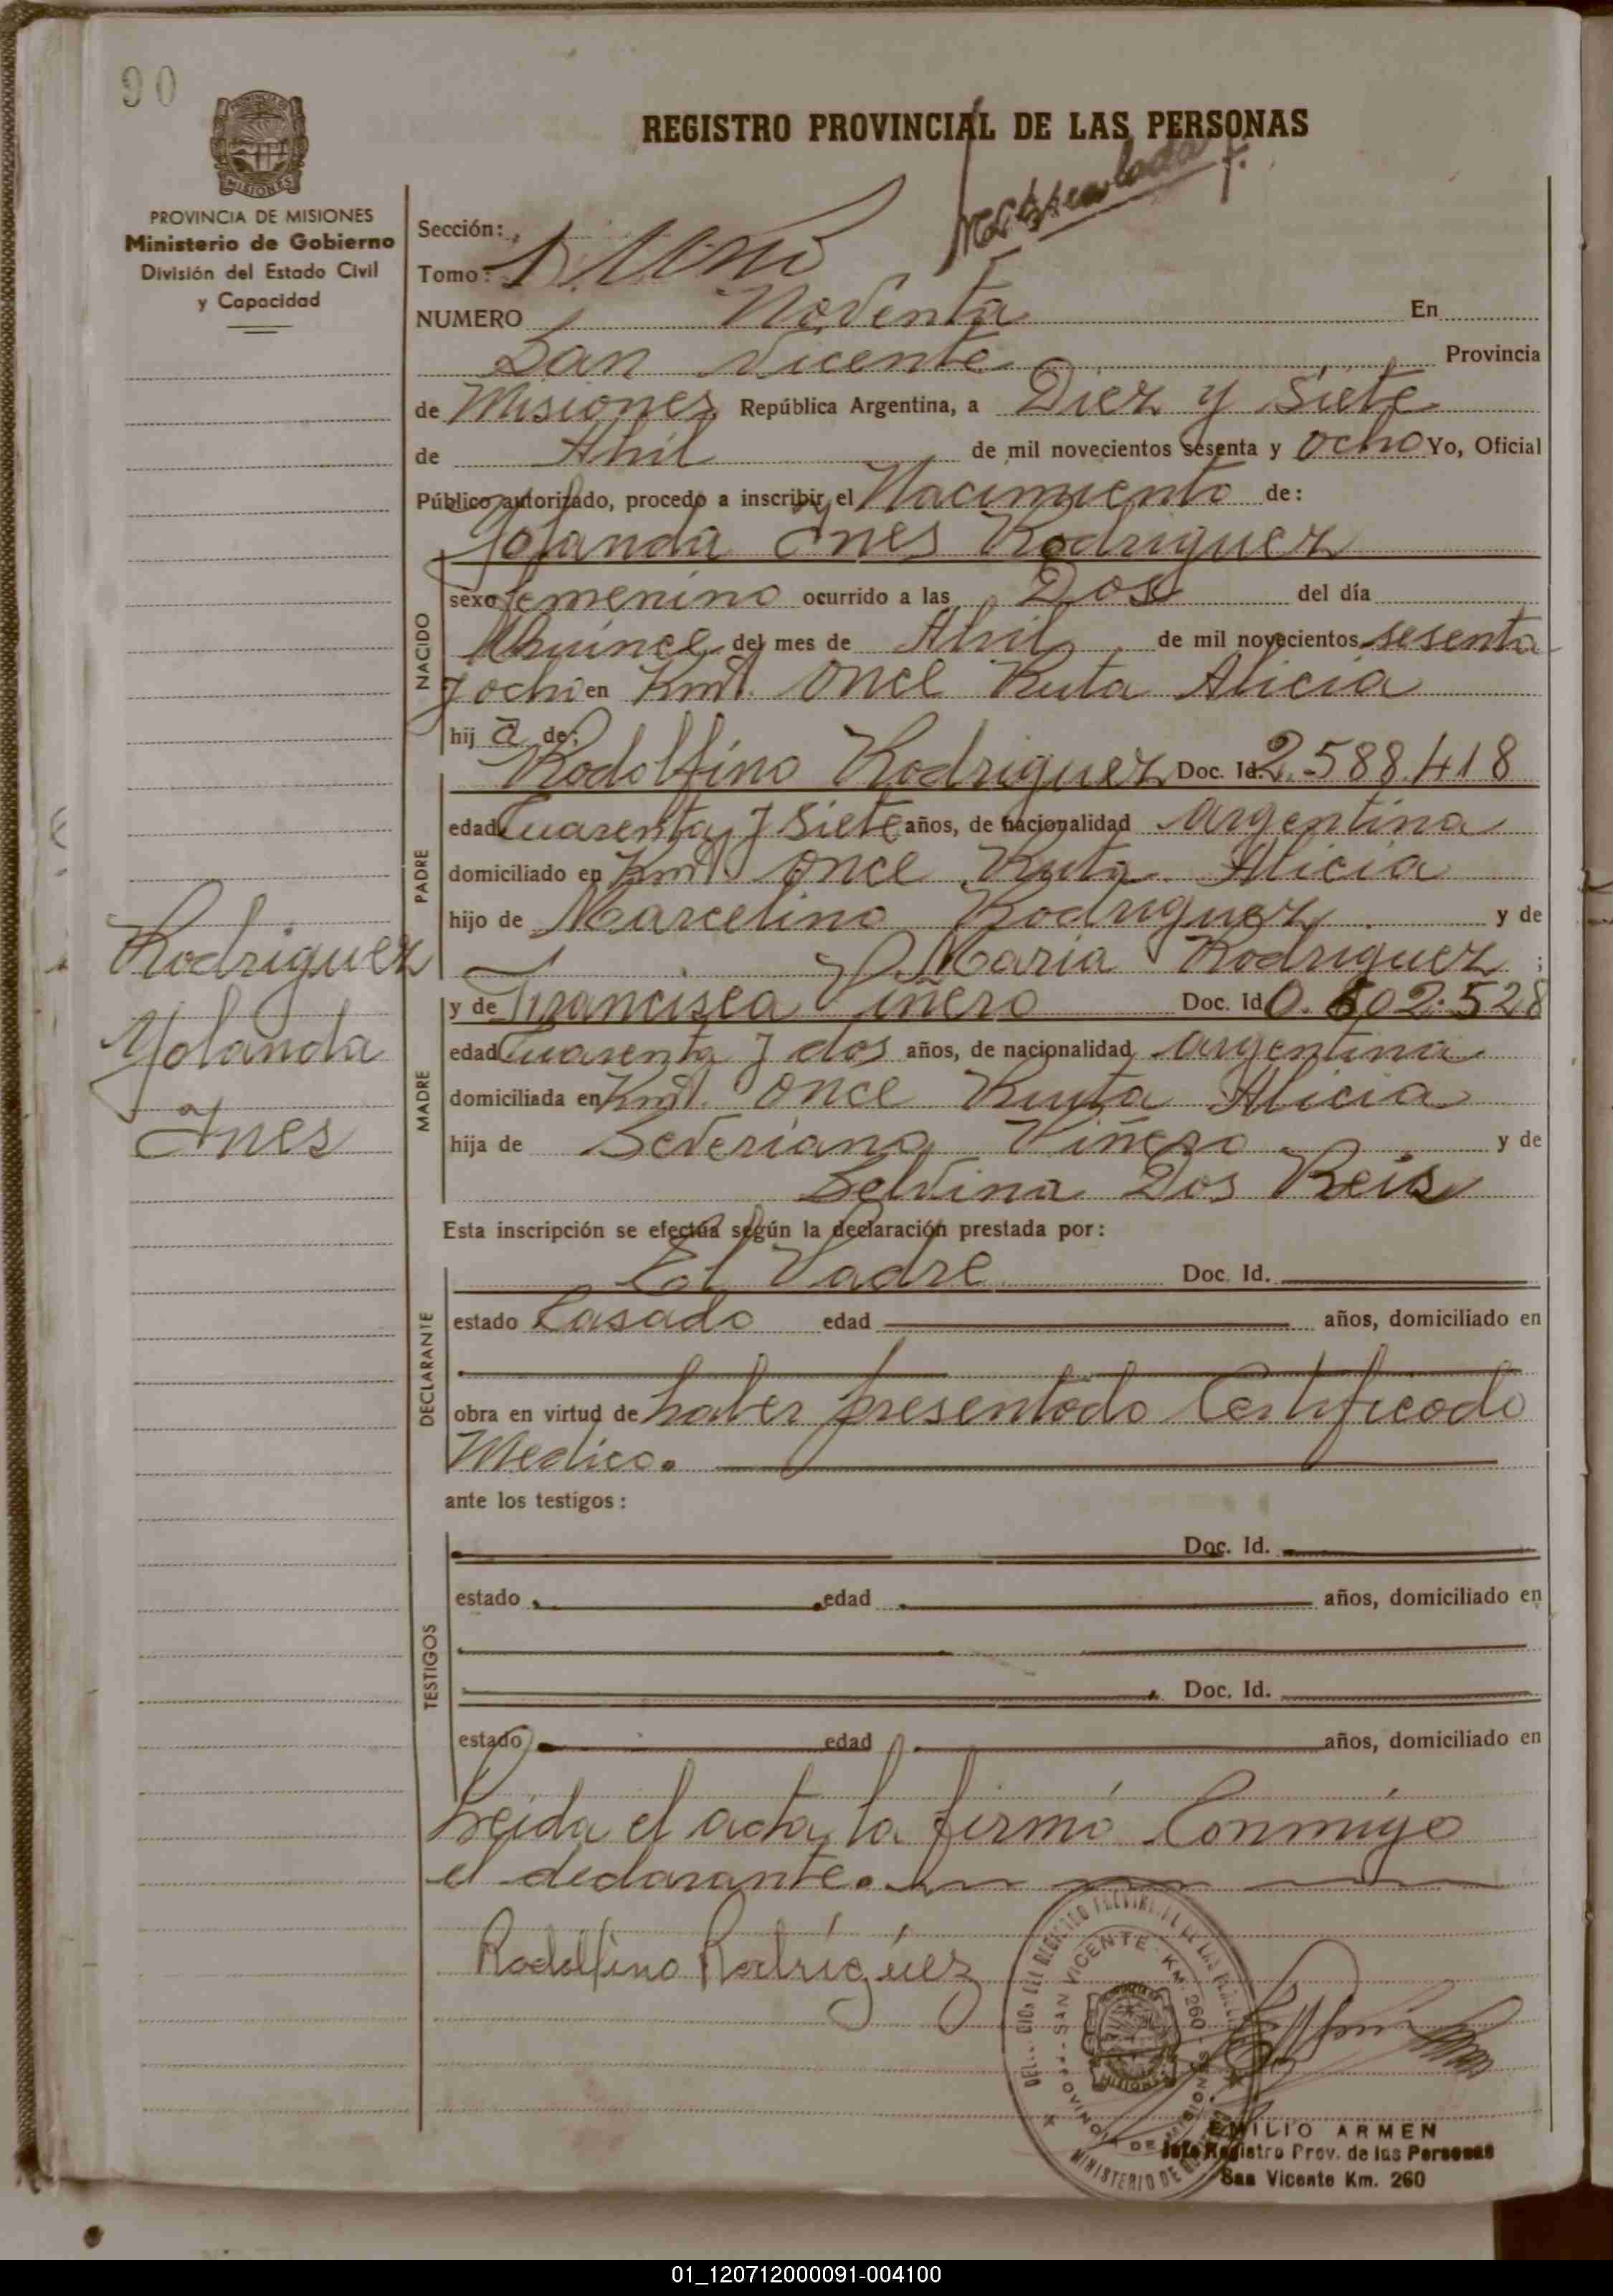 90
MISIONES
PROVINCIA DE MISIONES
Ministerio de Gobierno
División del Estado Civil
y Capacidad
REGISTRO PROVINCIAL DE LAS PERSONAS
Sección:
Tomo:
NUMERO Noventa En
San Vicente Provincia
de Misiones República Argentina, a Diez y Siete
de Abril de mil novecientos sesenta y ocho Yo, Oficial
Público autorizado, procedo a inscribir el Nacimiento de:
Yolanda Ines Rodriguez
NACIDO
sexo femenino ocurrido a las Dos del día
Quince del mes de Abril de mil novecientos sesenta
y ocho en Kmt. once Ruta Alicia
hij a de:
PADRE
Rodolfino Rodriguez Doc. Id. 2.588.418
edad Cuarenta y Siete años, de nacionalidad argentina
domiciliado en Kmt. once Ruta Alicia
hijo de Marcelino Rodriguez y de
Maria Rodriguez ;
MADRE
y de Francisca Viñero Doc. Id 0.602.528
edad Cuarenta y dos años, de nacionalidad argentina
domiciliada en Kmt. once Ruta Alicia
hija de Severiano Viñero y de
Selvina Dos Reis
Rodriguez
Yolanda
Ines
Esta inscripción se efectúa según la declaración prestada por:
DECLARANTE
El Padre Doc. Id.
estado Casado edad años, domiciliado en
obra en virtud de haber presentado Certificado
Medico.
ante los testigos:
TESTIGOS
Doc. Id.
estado edad años, domiciliado en
Doc. Id.
estado edad años, domiciliado en
Leida el acta, la firmó Conmigo
el declarante.
Rodolfino Rodríguez
SAN VICENTE - KM. 260
PROVINCIA DE MISIONES
MISIONES
EMILIO ARMEN
Jefe Registro Prov. de las Personas
San Vicente Km. 260
01_120712000091-004100